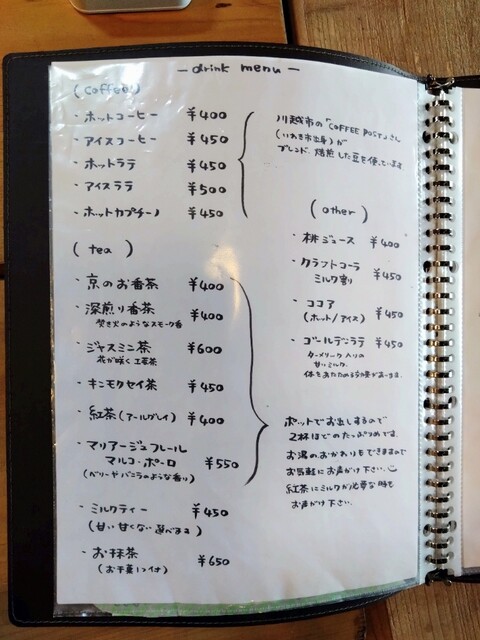 — drink menu —
(coffee)
・ホットコーヒー ¥400
・アイスコーヒー ¥450
・ホットラテ ¥450
・アイスラテ ¥500
・ホットカプチーノ ¥450
川越市の「COFFEE POST」さん
(いわき市出身)が
ブレンド、焙煎した豆を使っています。
(tea)
・京のお番茶 ¥400
・深煎り番茶 ¥400
焚き火のようなスモーク香
・ジャスミン茶 ¥600
花が咲く工芸茶
・キンモクセイ茶 ¥450
・紅茶(アールグレイ) ¥400
・マリアージュフレール
マルコ・ポーロ ¥550
(ベリーやバニラのような香り)
・ミルクティー ¥450
(甘い甘くない選べます)
・お抹茶 ¥650
(お干菓子付)
(other)
・桃ジュース ¥400
・クラフトコーラ
ミルク割り ¥450
・ココア
(ホット/アイス) ¥450
・ゴールデンラテ ¥450
ターメリック入りの
甘いミルク。
体をあたためる効果があります。
ポットでお出しするので
2杯ほどのたっぷりめです。
お湯のおかわりもできますので
お気軽にお声がけ下さい。
紅茶にミルクが必要な時も
お声がけ下さい。